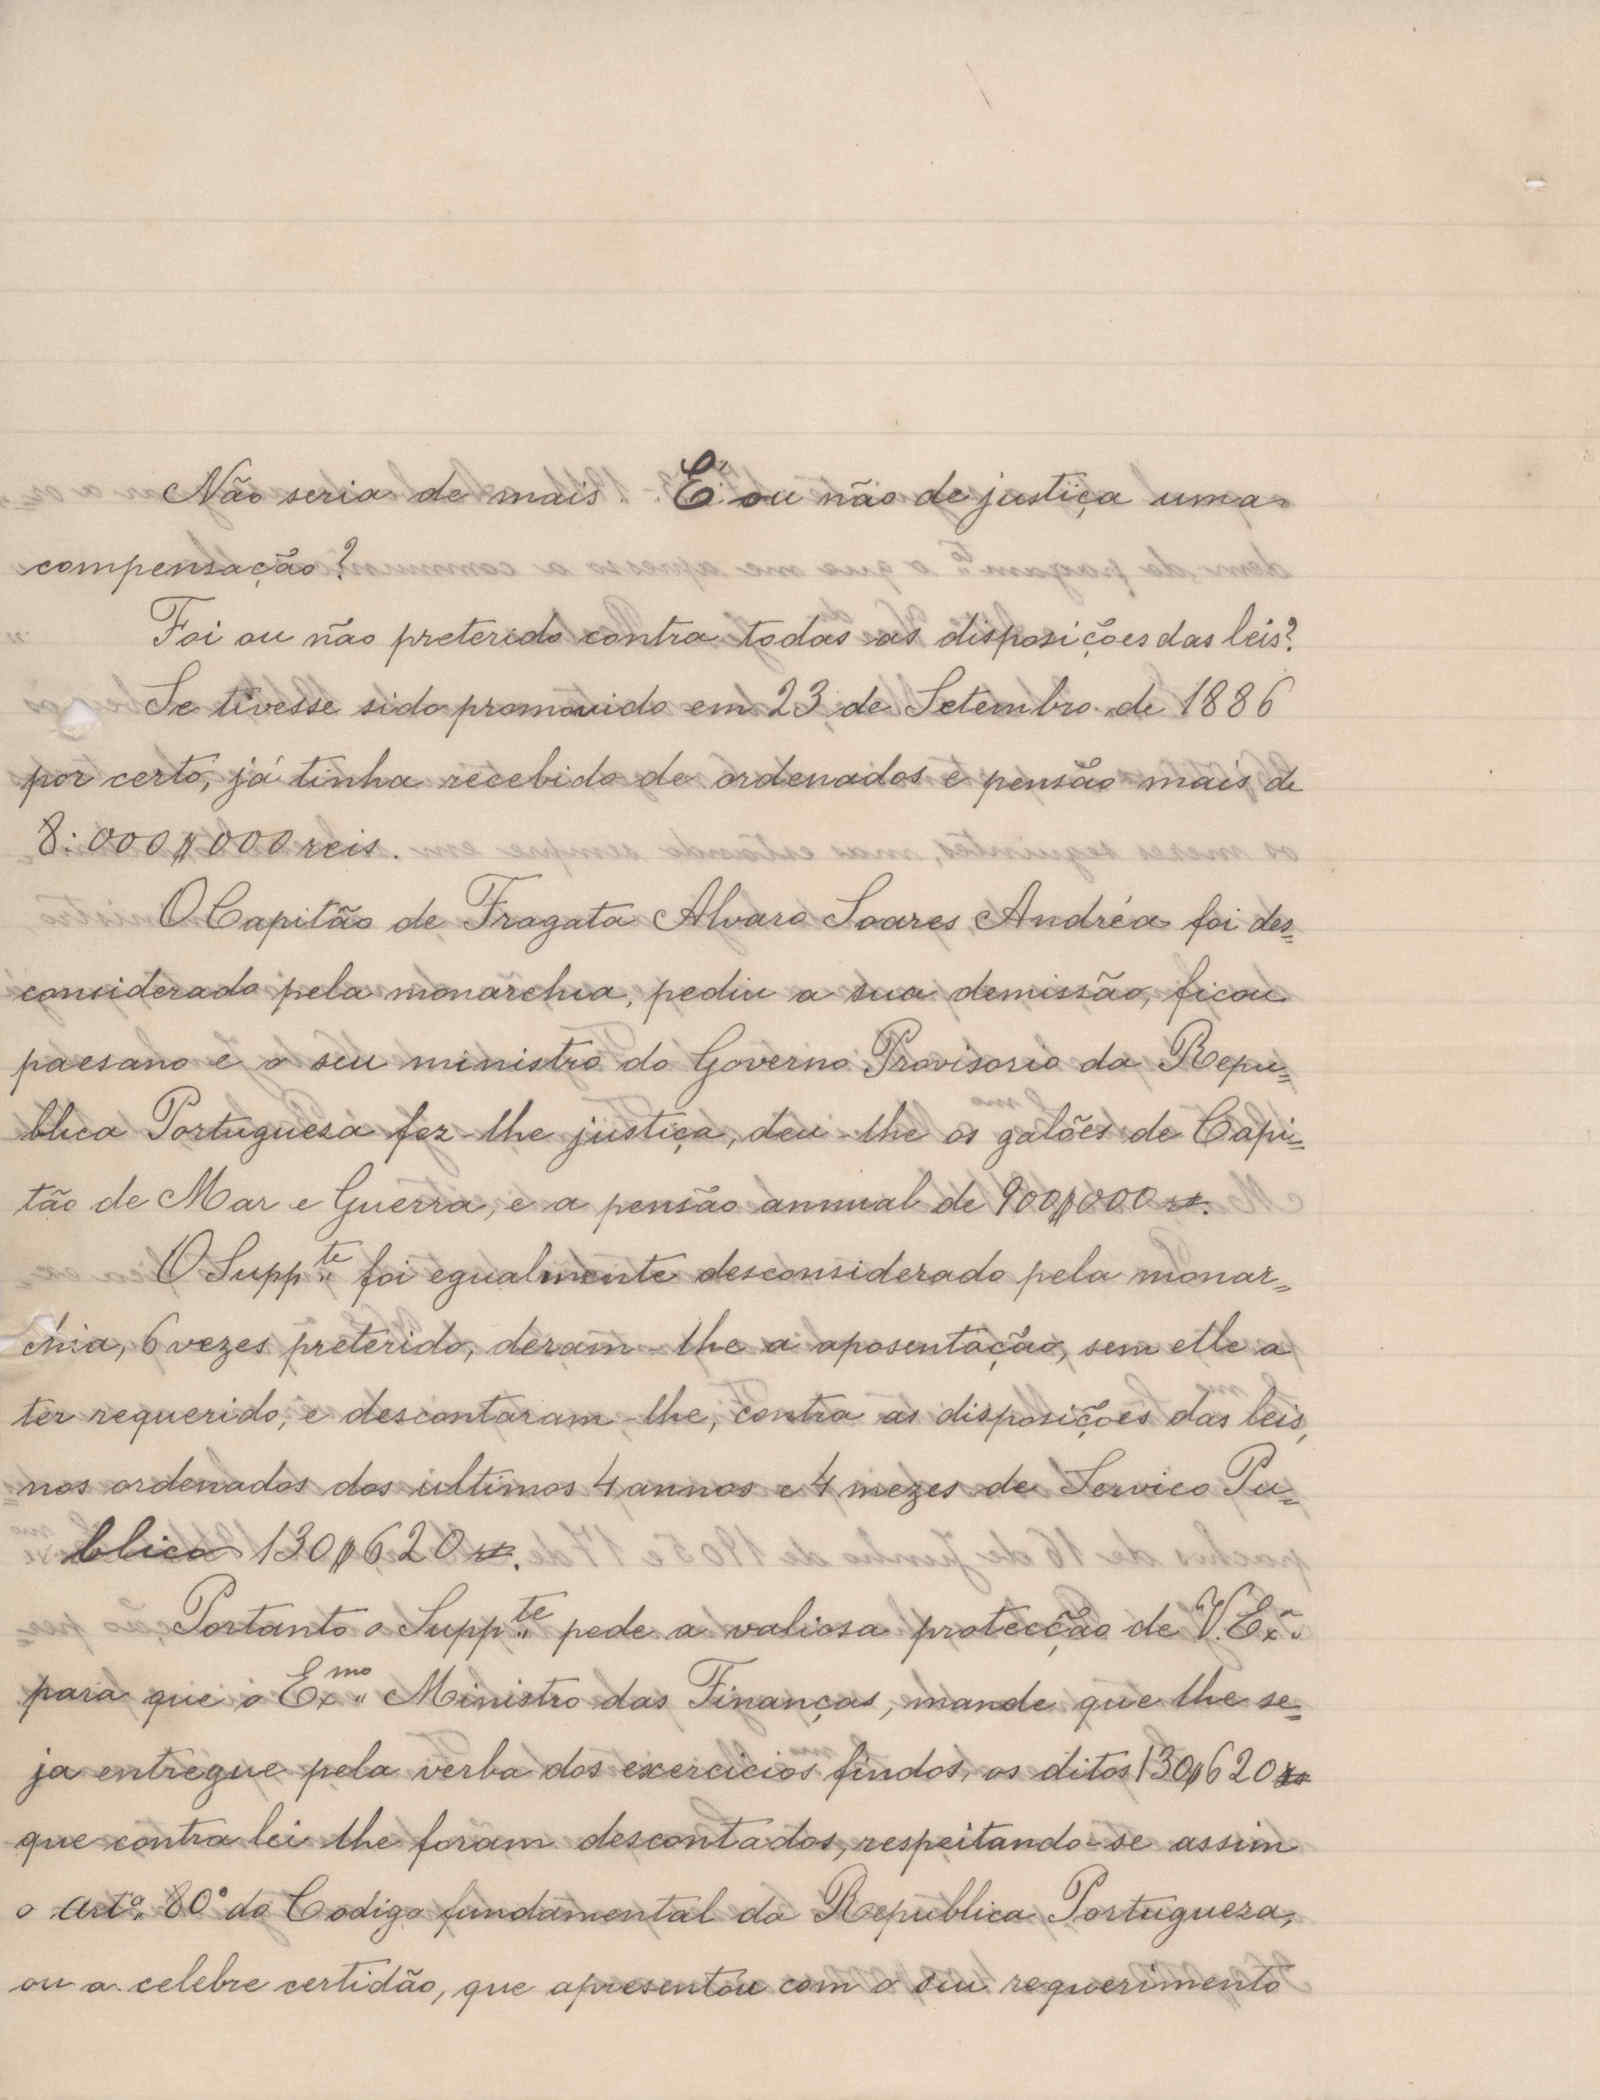 Não seria de mais. É ou não de justiça uma
compensação?
Foi ou não preterido contra todas as disposições das leis?
Se tivesse sido promovido em 23 de Setembro de 1886
por certo, já tinha recebido de ordenados e pensão mais de
8:000$000 reis.
O Capitão de Fragata Alvaro Soares Andréa foi des=
considerado pela monarchia, pediu a sua demissão, ficou
paesano e o seu ministro do Governo Provisorio da Repu=
blica Portuguesa fez-lhe justiça, deu-lhe os galões de Capi=
tão de Mar e Guerra, e a pensão annual de 900$000 rs.
O Suppte foi egualmente desconsiderado pela monar=
chia, 6 vezes preterido, deram-lhe a aposentação, sem elle a
ter requerido, e descontaram-lhe, contra as disposições das leis,
nos ordenados dos ultimos 4 annos e 4 mezes de Servico Pu=
blico 130$620 rs.
Portanto o Suppte pede a valiosa protecção de V. Exª
para que o Exmo Ministro das Finanças, mande que lhe se=
ja entregue pela verba dos exercicios findos, os ditos 130$620 rs
que contra lei lhe foram descontados, respeitando-se assim
o artº 80º do Codigo fundamental da Republica Portugueza,
ou a celebre certidão, que apresentou com o seu requerimento